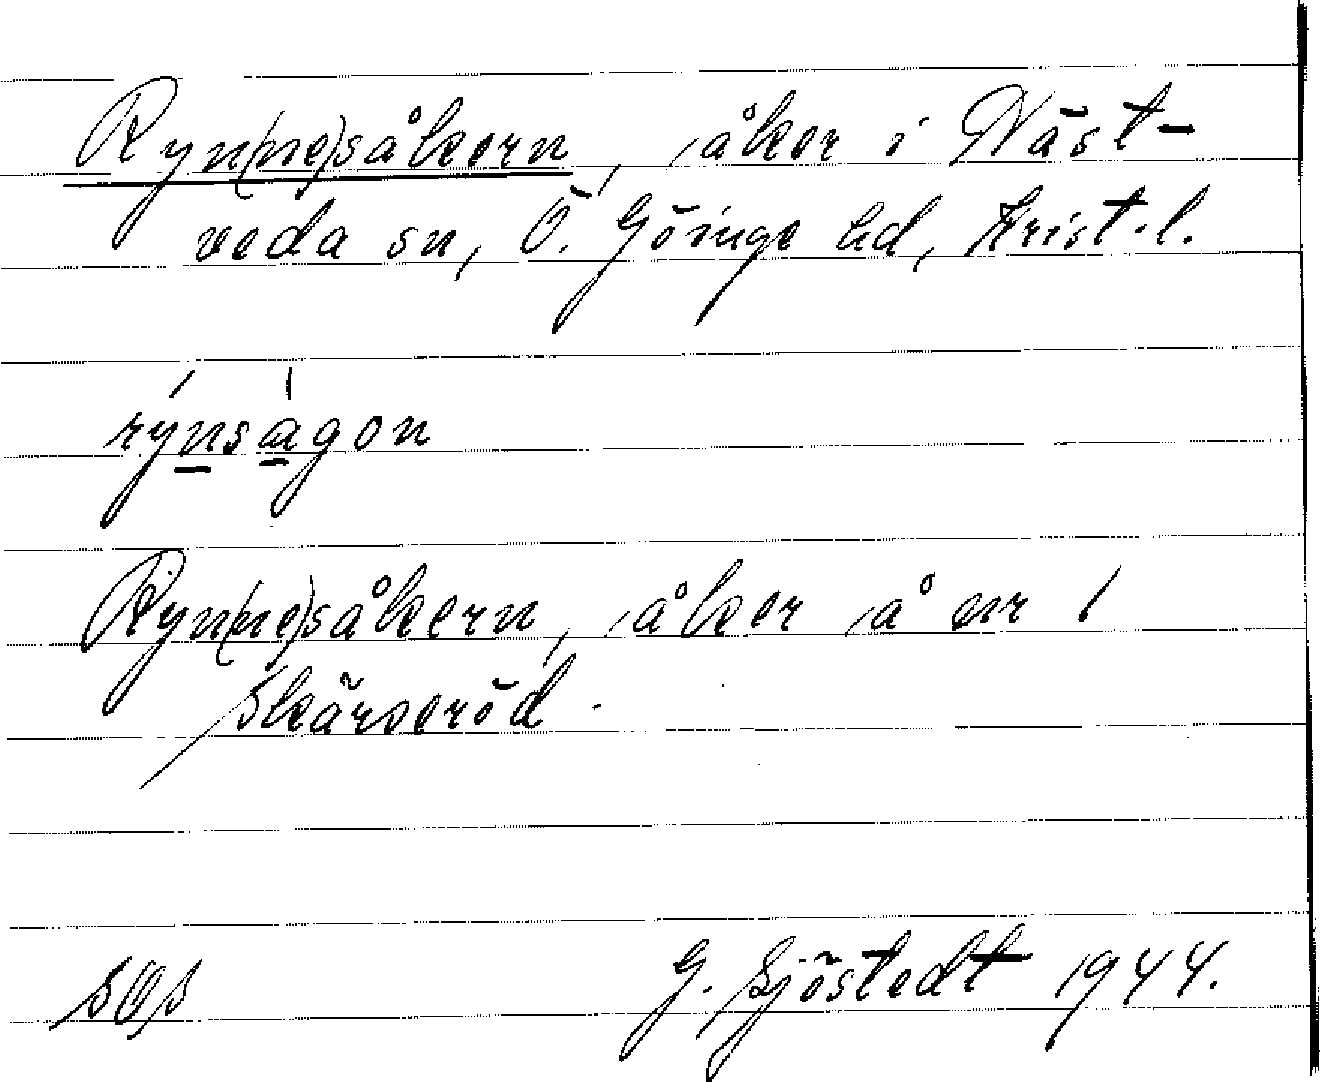 Ryn(ne)såkern, åker i Näst-
veda sn, Ö. Göinge hd, Krist.l.
rýnsågon
Ryn(ne)såkern, åker å nr 1
Skärseröd.
SOS G. Sjöstedt 1944.